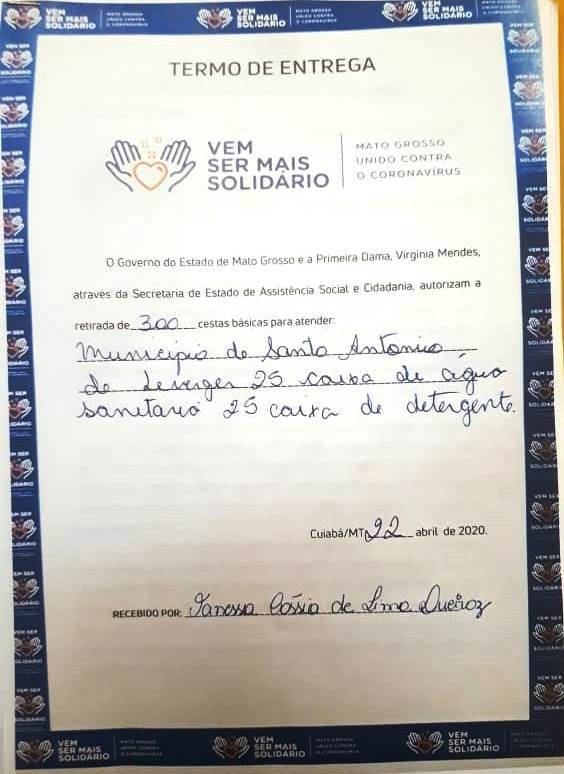 VEM SER MAIS SOLIDÁRIO
MATO GROSSO UNIDO CONTRA O CORONAVÍRUS
TERMO DE ENTREGA
VEM
SER MAIS
SOLIDÁRIO
MATO GROSSO
UNIDO CONTRA
O CORONAVÍRUS
O Governo do Estado de Mato Grosso e a Primeira Dama, Virginia Mendes,
através da Secretaria de Estado de Assistência Social e Cidadania, autorizam a
retirada de 300 cestas básicas para atender:
Município de Santo Antonio
de Leverger 25 caixa de água
sanitaria 25 caixa de detergente.
Cuiabá/MT 22 abril de 2020.
RECEBIDO POR: Vanessa Cássia de Lima Queiroz
VEM
SER MAIS
SOLIDÁRIO
MATO GROSSO
UNIDO CONTRA
O CORONAVÍRUS